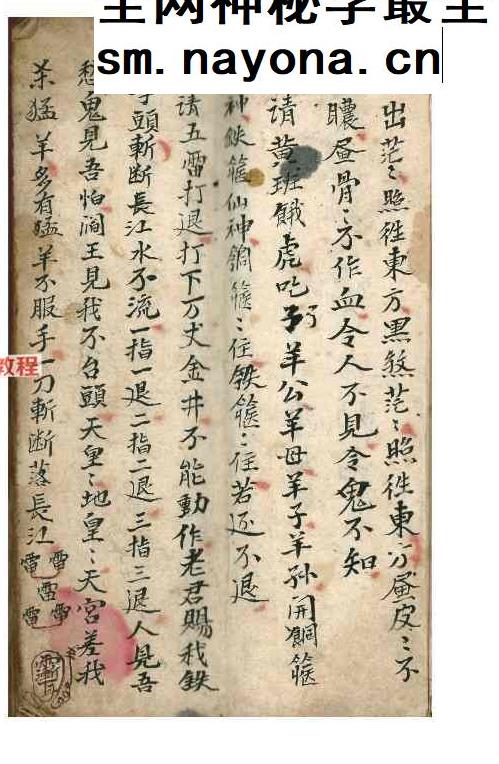 全网神秘学最全
sm.nayona.cn
出茫〻照徃東方黑煞茫〻照徃東方蚕皮〻不
蚕骨〻不作血令人不見令鬼不知
请黃班餓虎吃羊公羊母羊子羊孙開銅篐
神鉄篐仙神銅篐〻住鉄篐〻住若还不退
请五雷打退打下万丈金井不能動作老君賜我鉄
頭斬断長江水不流一指一退二指二退三指三退人見吾
愁鬼見吾怕阎王見我不台頭天皇〻地皇〻天宫差我
杀猛羊多有猛羊不服手一刀斬断落長江
教程